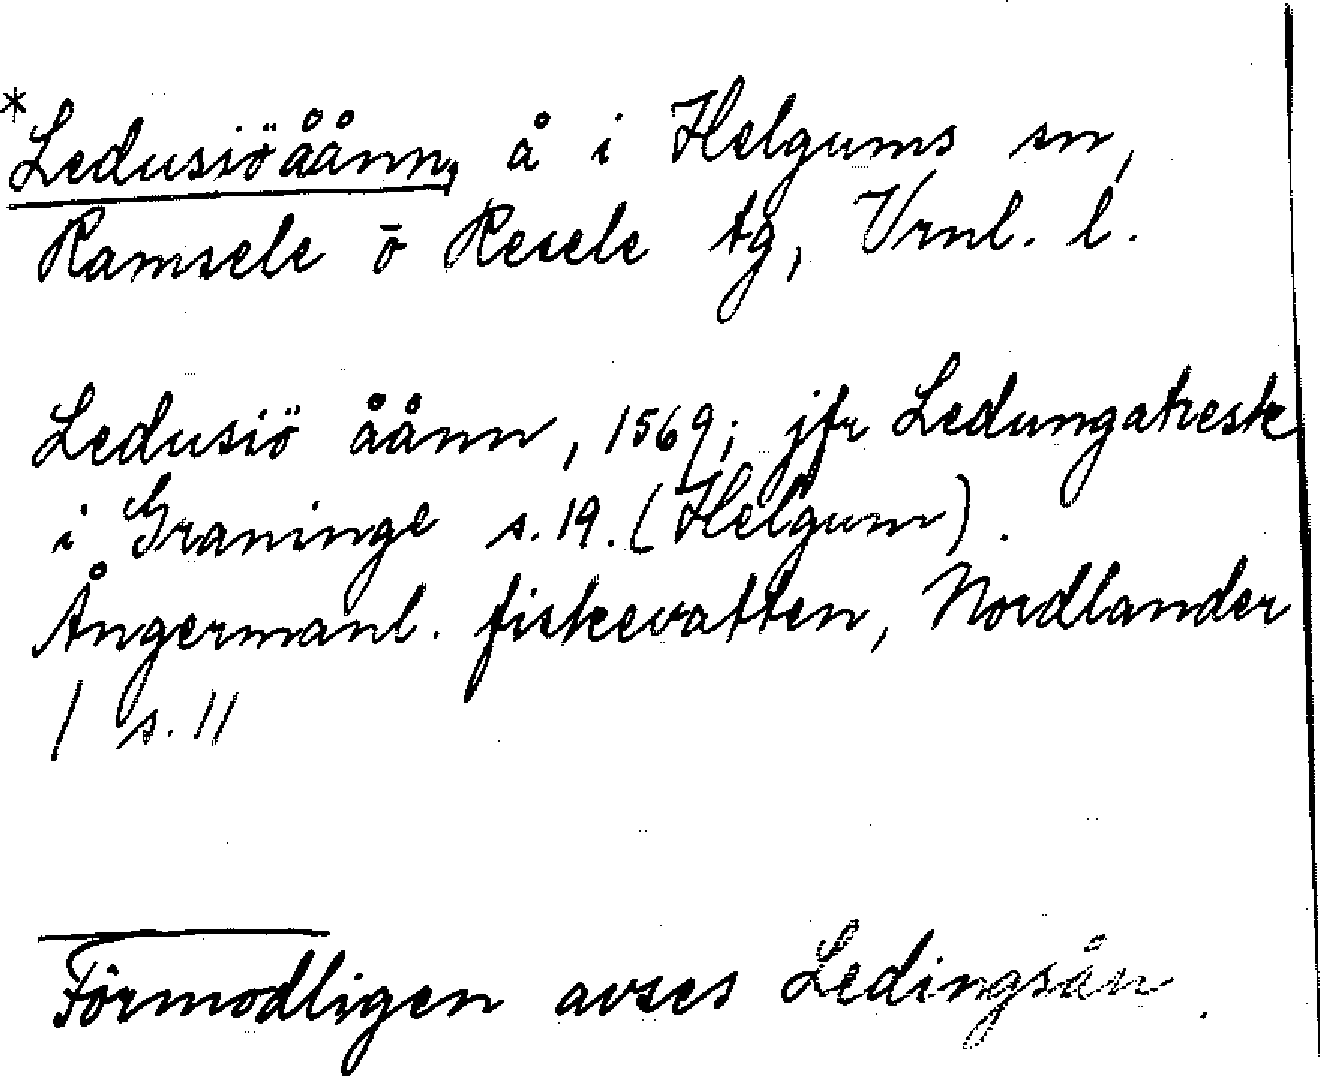 *Ledusiöåånn, å i Helgums sn,
Ramsele o Resele tg, Vrnl. l.
Ledusiö åånn, 1569; jfr Ledungatresk
i Graninge s. 19. (Helgum).
Ångermanl. fiskevatten, Nordlander
1 s. 11
Förmodligen avses Ledingsån.